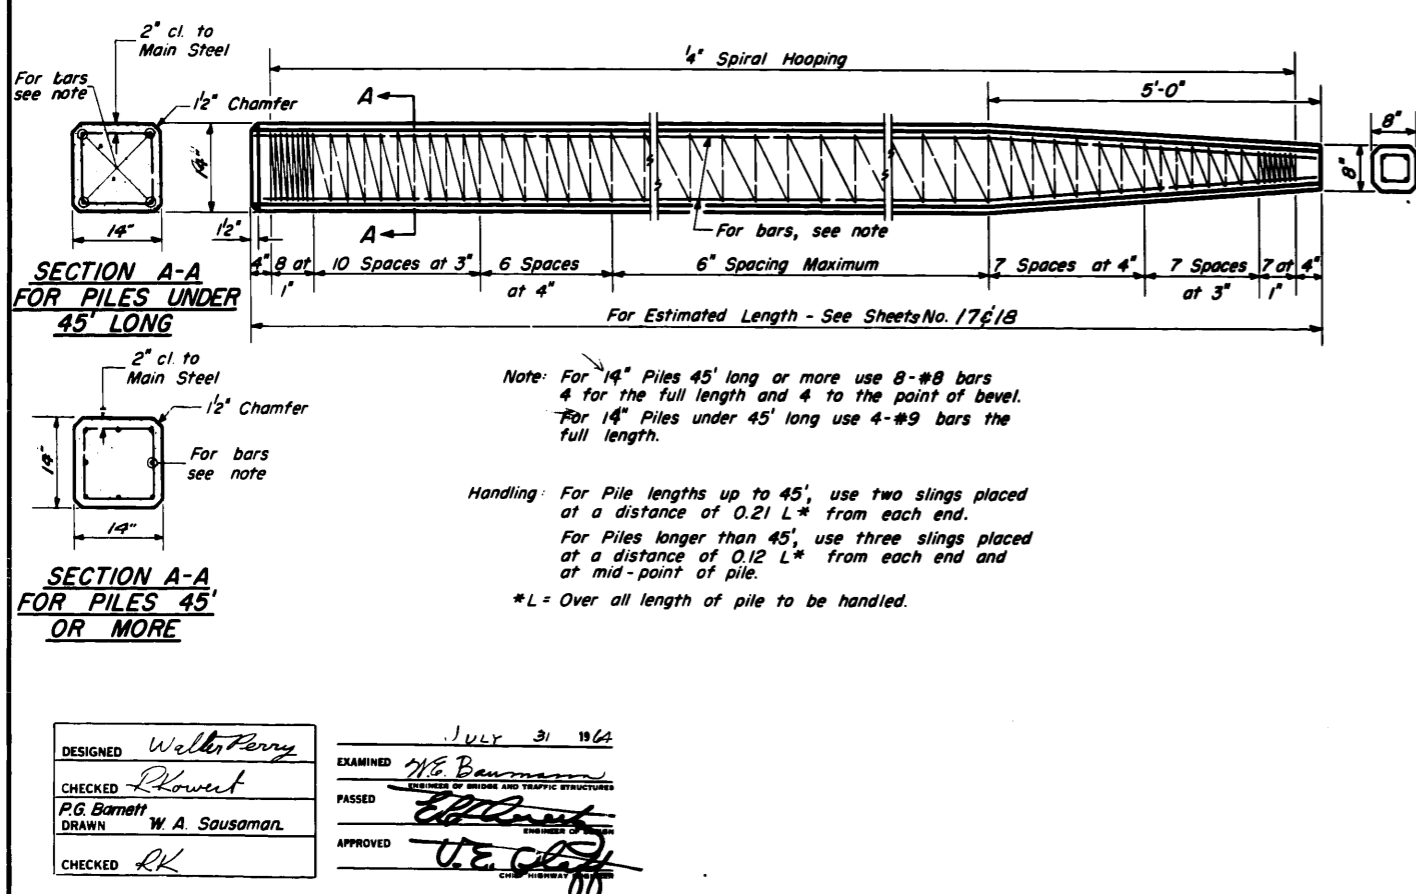 2" cl. to
Main Steel
For bars
see note
1½" Chamfer
14"
14"
SECTION A-A
FOR PILES UNDER
45' LONG
¼" Spiral Hooping
5'-0"
A
A
8"
8"
1½"
For bars, see note
4"
8 at
1"
10 Spaces at 3"
6 Spaces
at 4"
6" Spacing Maximum
7 Spaces at 4"
7 Spaces
at 3"
7 at
1"
4"
For Estimated Length - See Sheets No. 17¢18
2" cl. to
Main Steel
1½" Chamfer
14"
For bars
see note
14"
SECTION A-A
FOR PILES 45'
OR MORE
Note: For 14" Piles 45' long or more use 8-#8 bars
4 for the full length and 4 to the point of bevel.
For 14" Piles under 45' long use 4-#9 bars the
full length.
Handling: For Pile lengths up to 45', use two slings placed
at a distance of 0.21 L* from each end.
For Piles longer than 45', use three slings placed
at a distance of 0.12 L* from each end and
at mid-point of pile.
*L = Over all length of pile to be handled.
DESIGNED Walter Perry
CHECKED
P.G. Barnett
DRAWN W. A. Sausaman
CHECKED RK
JULY 31 1964
EXAMINED W.E. Baumann
ENGINEER OF BRIDGE AND TRAFFIC STRUCTURES
PASSED
ENGINEER OF DESIGN
APPROVED
CHIEF HIGHWAY ENGINEER